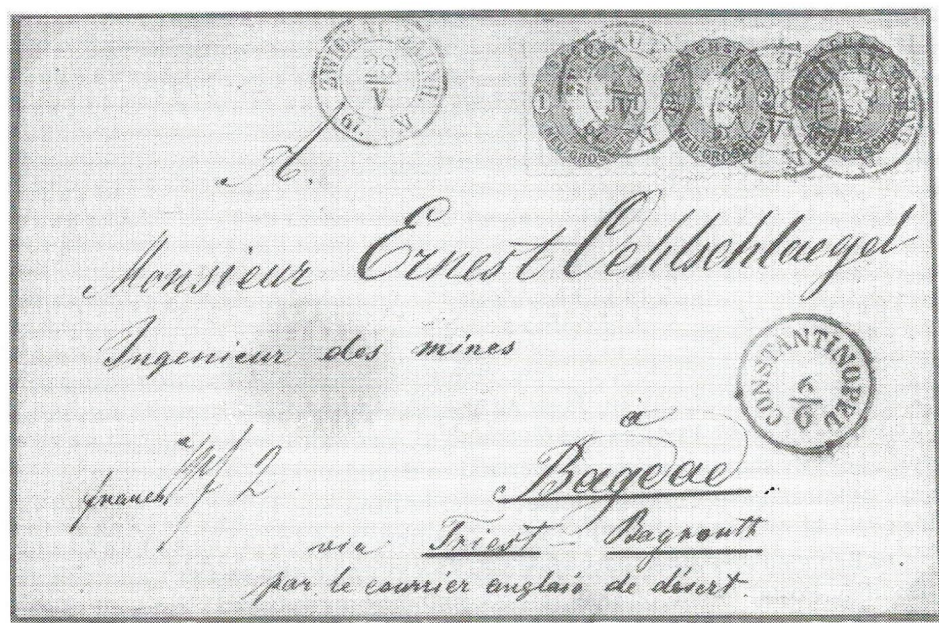 ZWICKAU BAHNH
28
V
61. VI
1
NEU-GROSCHEN
NEU-GROSCHEN
A.
Monsieur Ernest Oehlschlaegel
Ingenieur des mines
CONSTANTINOPEL
6
à
Bagdad
franco 2
via Triest - Bayrouth
par le courrier anglais de désert.